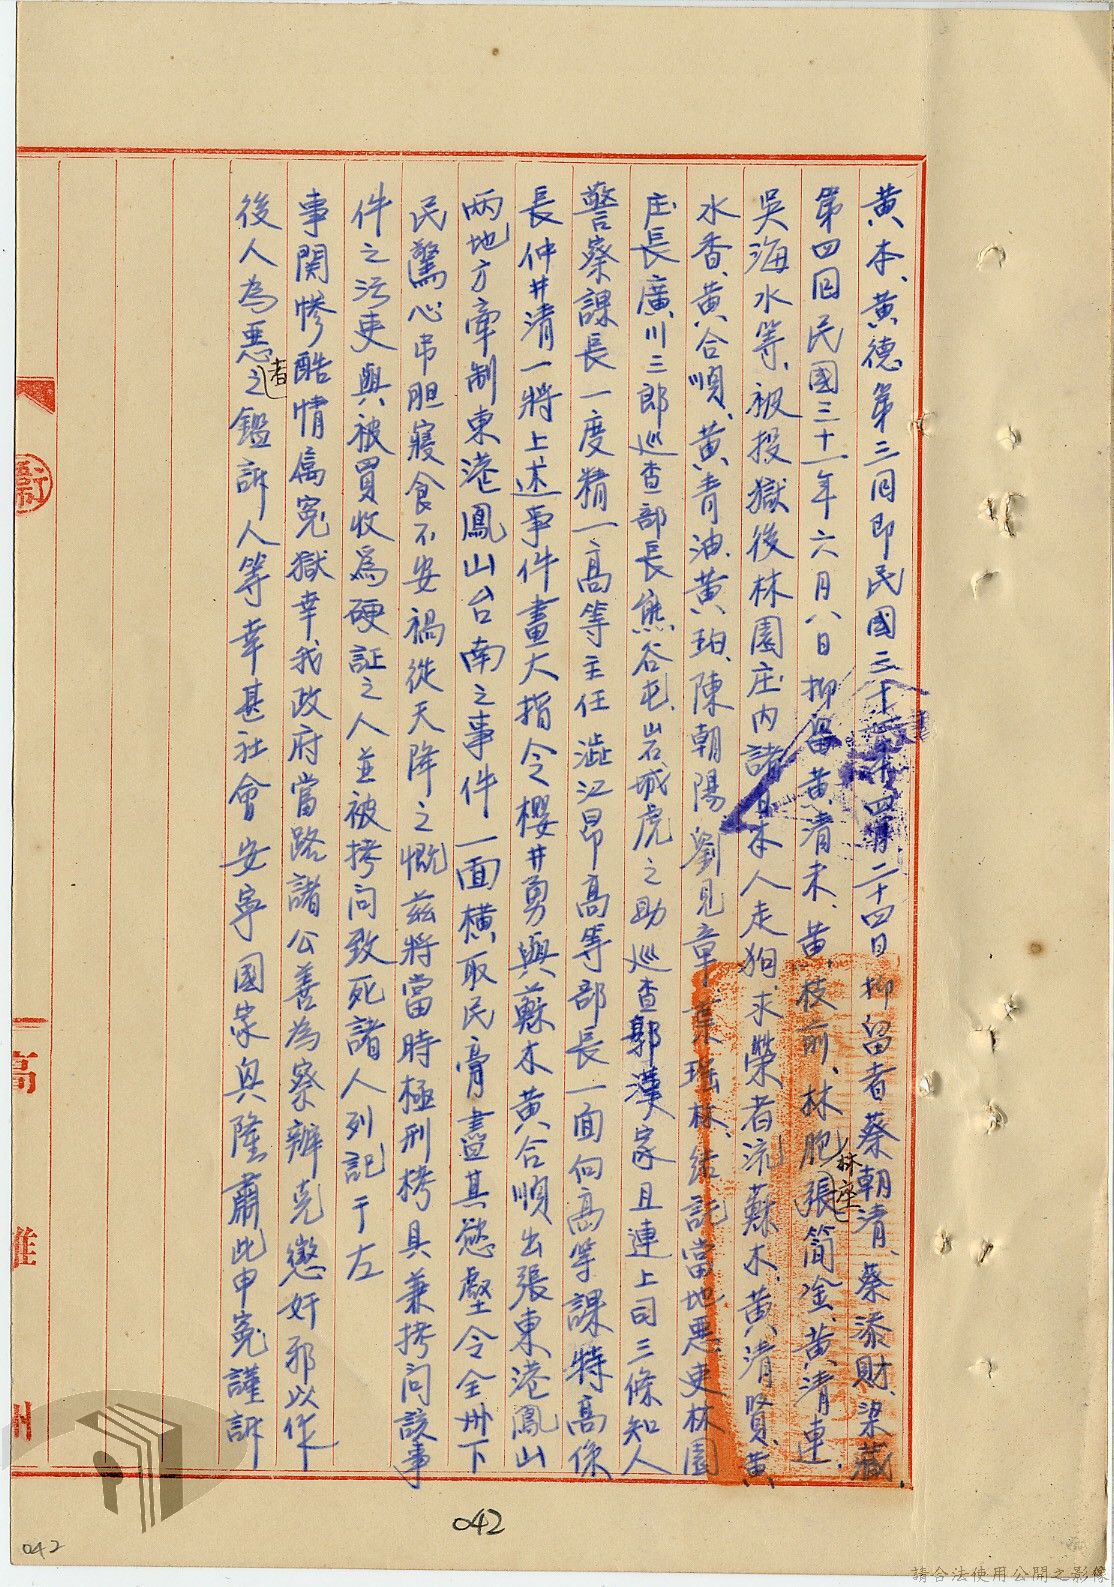 黃本、黃德、第三回即民國三十一年四月二十四日抑留者蔡朝清、蔡添財、梁藏、
第四回民國三十一年六月八日抑留黃清未、黃枝前、林胞、張簡淦、黃清連、
林座
吳海水等、被投獄後林園庄內諸日本人走狗、求榮者流、蘇木、黃清賢、黃
水香、黃合順、黃青油、黃珀、陳朝陽、劉見章、葉瑤林、結託當地惡吏林園
庄長廣川三郎巡查部長熊谷屯、岩城虎之助巡查郭漢家且連上司三條知人
警察課長一度精一高等主任澁江昂高等部長一面向高等課特高係
長仲井清一將上述事件畫大指令櫻井勇與蘇木黃合順出張東港鳳山
兩地方牽制東港鳳山台南之事件一面橫取民膏盡其慾壑令全州下
民驚心吊胆寢食不安禍從天降之慨茲將當時極刑拷具兼拷問該事
件之污吏與被買收為硬証之人並被拷问致死諸人列記于左
事関慘酷情属冤獄幸我政府當路諸公善為察辨克懲奸邪以作
後人為惡之者鑑訴人等幸甚社會安寧國家興隆肅此申冤謹訴
高雄州
042
042
請合法使用公開之影像